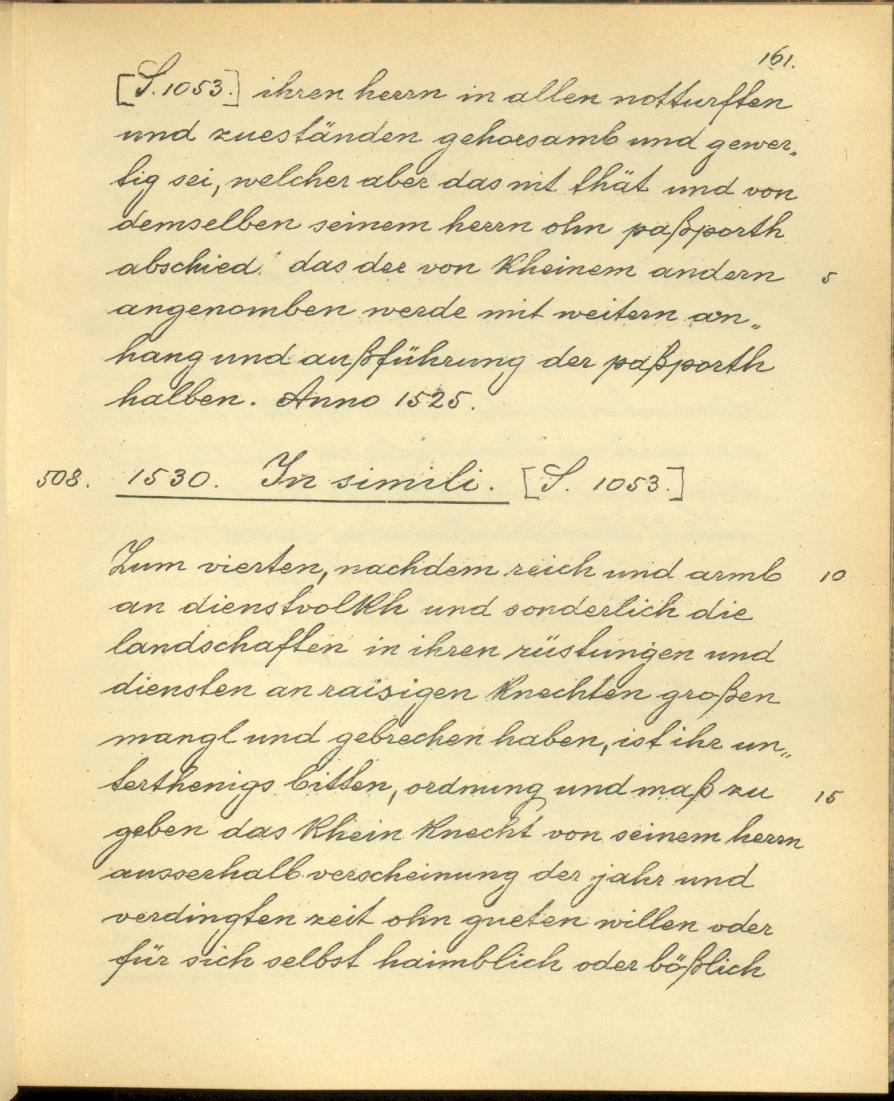 161.
[S. 1053.] ihren herrn in allen notturften
und zueständen gehorsamb und gewer„
tig sei, welcher aber das nit thät und von
demselben seinem herrn ohn paßporth
abschied! das der von kheinem andern 5
angenomben werde mit weitern an„
hang und außführung der paßporth
halben. Anno 1525.
508. 1530. In simili. [S. 1053.]
Zum vierten, nachdem reich und armb 10
an dienstvolkh und sonderlich die
landschaften in ihren rüstungen und
diensten an raisigen knechten großen
mangl und gebrechen haben, ist ihr un„
terthenigs bitten, ordnung und maß zu 15
geben das khein knecht von seinem herrn
ausserhalb verscheinung der jahr und
verdingten zeit ohn gueten willen oder
für sich selbst haimblich oder bößlich